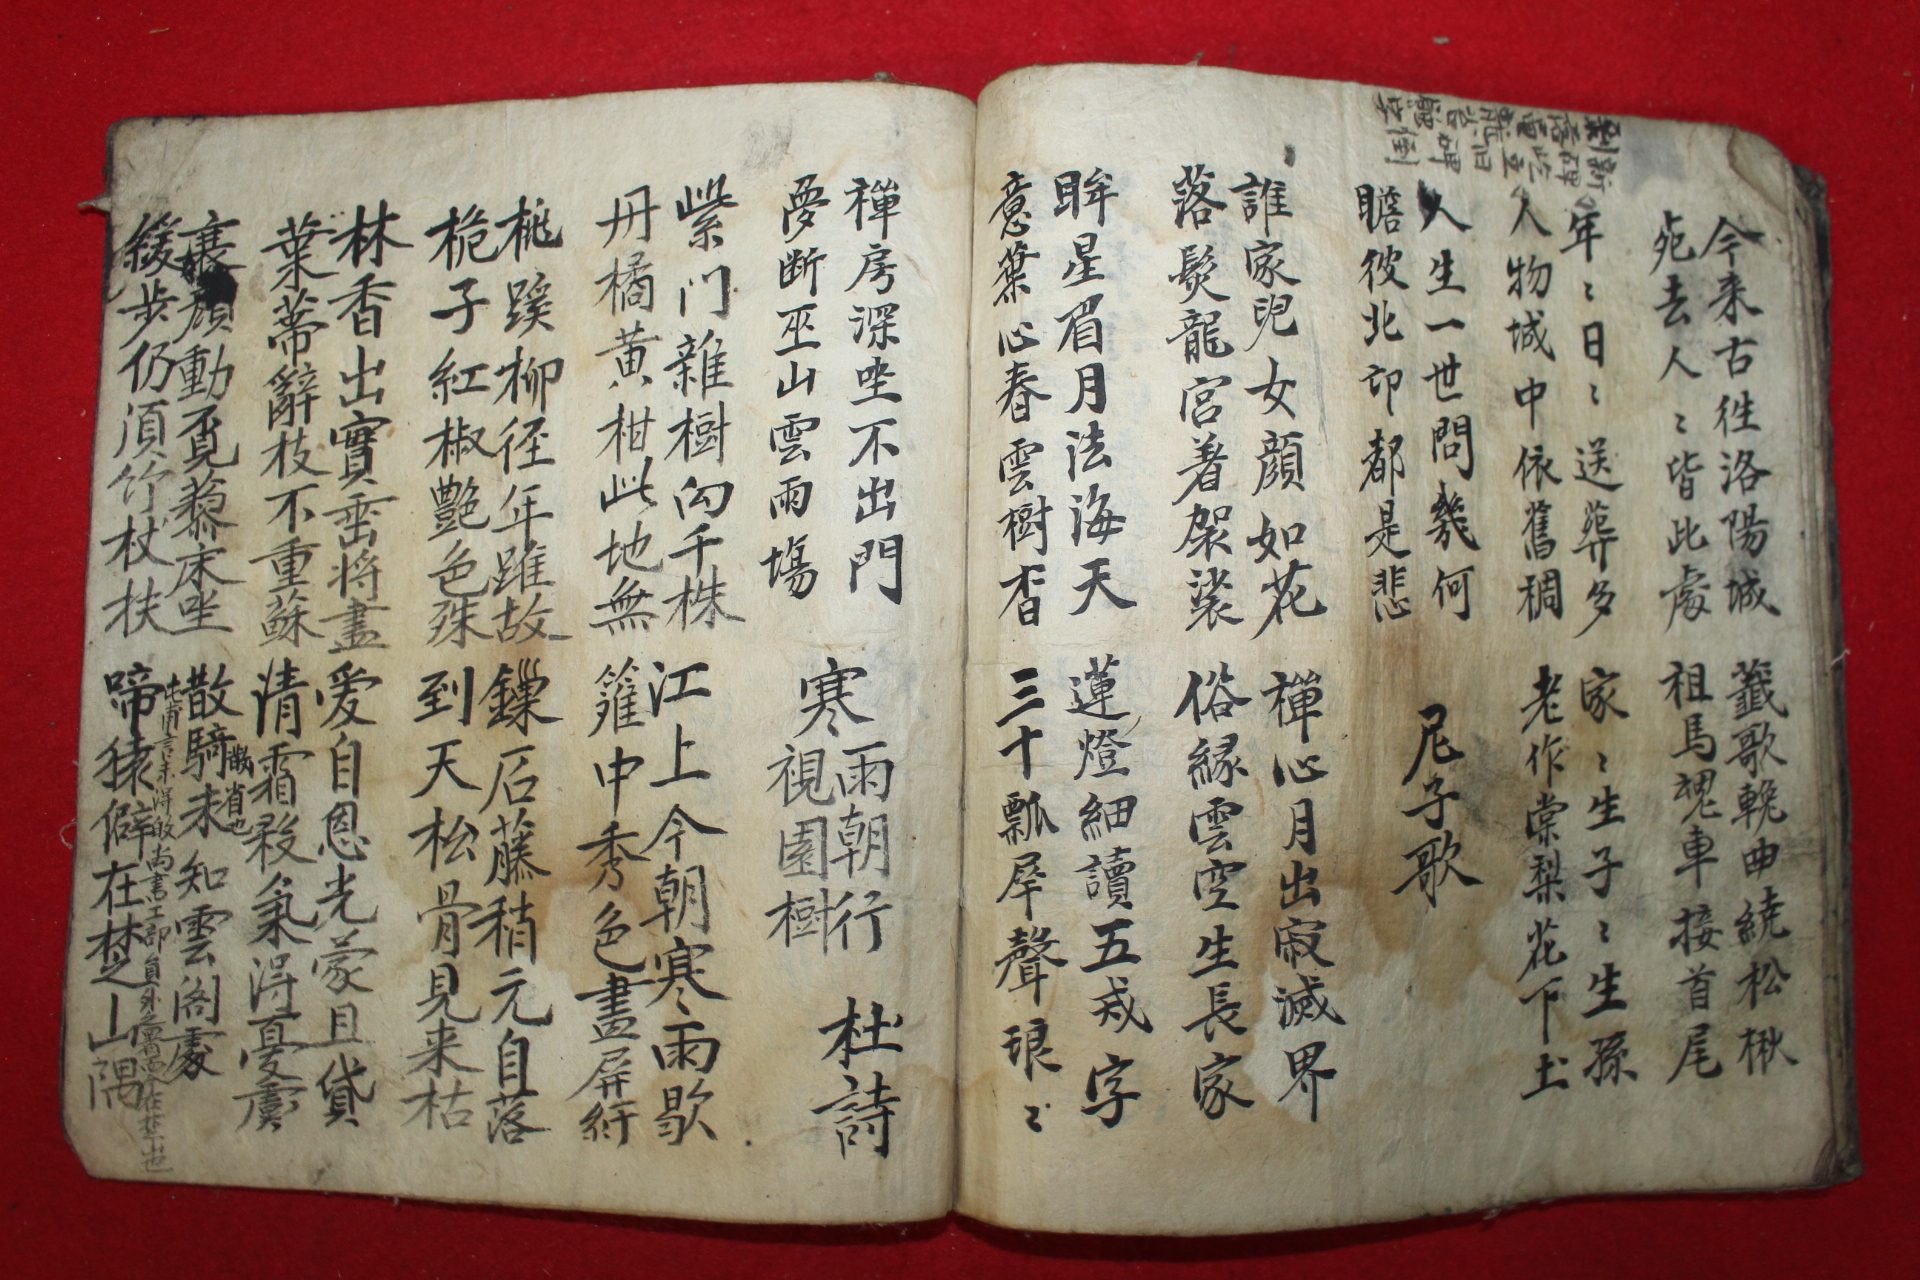 今来古徃洛陽城 薤歌輓曲繞松楸
死去人〻皆此處 祖馬魂車接首尾
年〻日〻送葬多 家〻生子〻生孫
人物城中依舊稠 老作棠梨花下土
人生一世問幾何
瞻彼北卬都是悲
尼子歌
誰家兒女顔如花 禪心月出寂滅界
落髮龍宮着袈裟 俗緣雲空生長家
眸星眉月法海天 蓮燈細讀五戒字
意蘂心春雲樹杳 三十瓢犀聲琅〻
禪房深坐不出門
夢断巫山雲雨塲
寒雨朝行視園樹 杜詩
柴门雜樹向千株 江上今朝寒雨歇
丹橘黃柑此地無 籬中秀色畫屏紆
桃蹊柳径年雖故 鏁石藤稍元自落
梔子紅椒艶色殊 到天松骨見来枯
林香出實垂將盡 爱自恩光蒙且貸
葉蒂辭枝不重蘇 清霜殺氣得憂虞
衰顔動覓藜床坐 散騎未知雲閣處
散省也
緩步仍湏竹杖扶 啼猿僻在楚山隅
杜甫言未得做尚書工部員外在楚山也